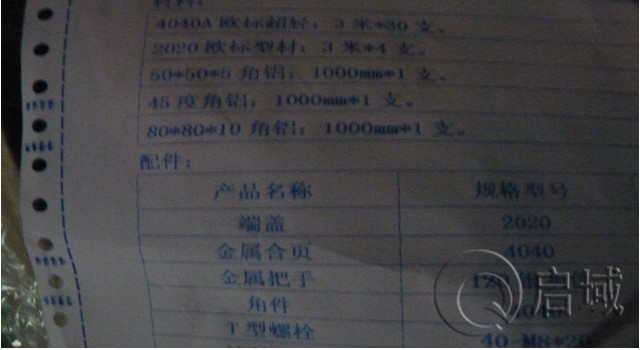 材料:
4040A 欧标超轻: 3 米*30 支。
2020 欧标型材: 3 米*4 支。
50*50*5 角铝: 1000mm*1 支。
45 度角铝: 1000mm*1 支。
80*80*10 角铝: 1000mm*1 支。
配件:
产品名称 规格型号
端盖 2020
金属合页 4040
金属把手 120
角件 4040
T 型螺栓 40-M8*20
启域